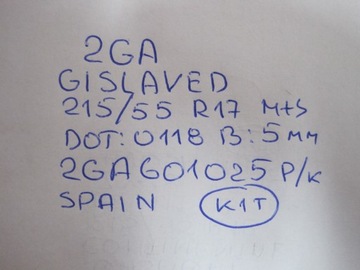 2GA
GISLAVED
215/55 R17 M+S
DOT: 0118 B: 5 мм
2GA601025 P/K
SPAIN K1T